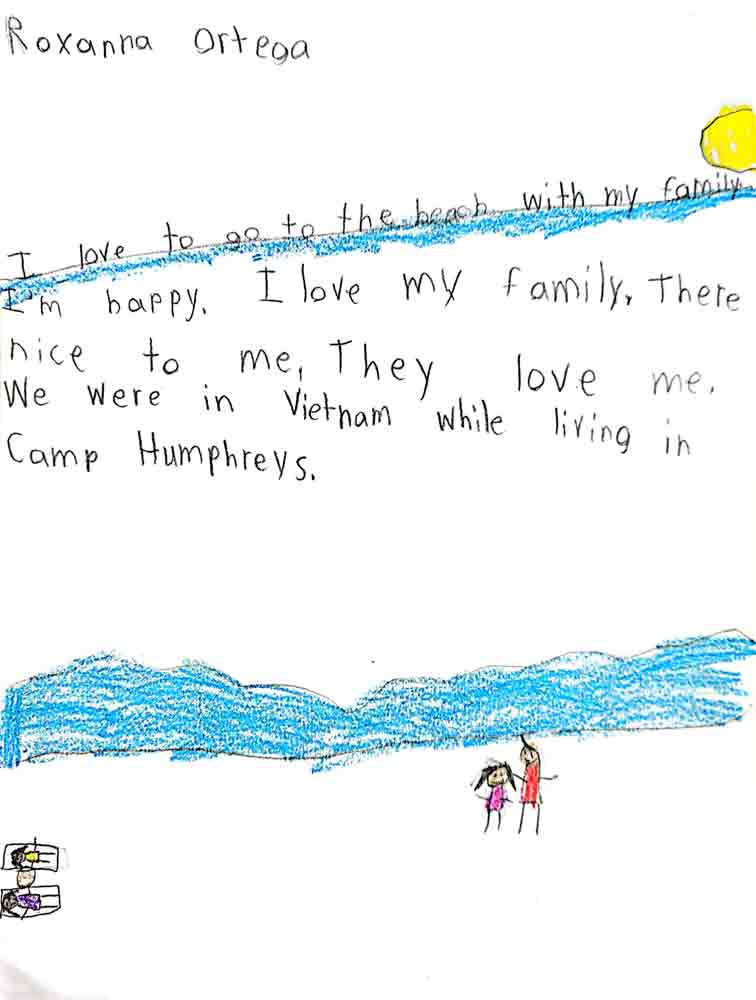 Roxanna Ortega
I love to go to the beach with my family
I'm happy. I love my family. There
nice to me. They love me.
We were in Vietnam while living in
Camp Humphreys.